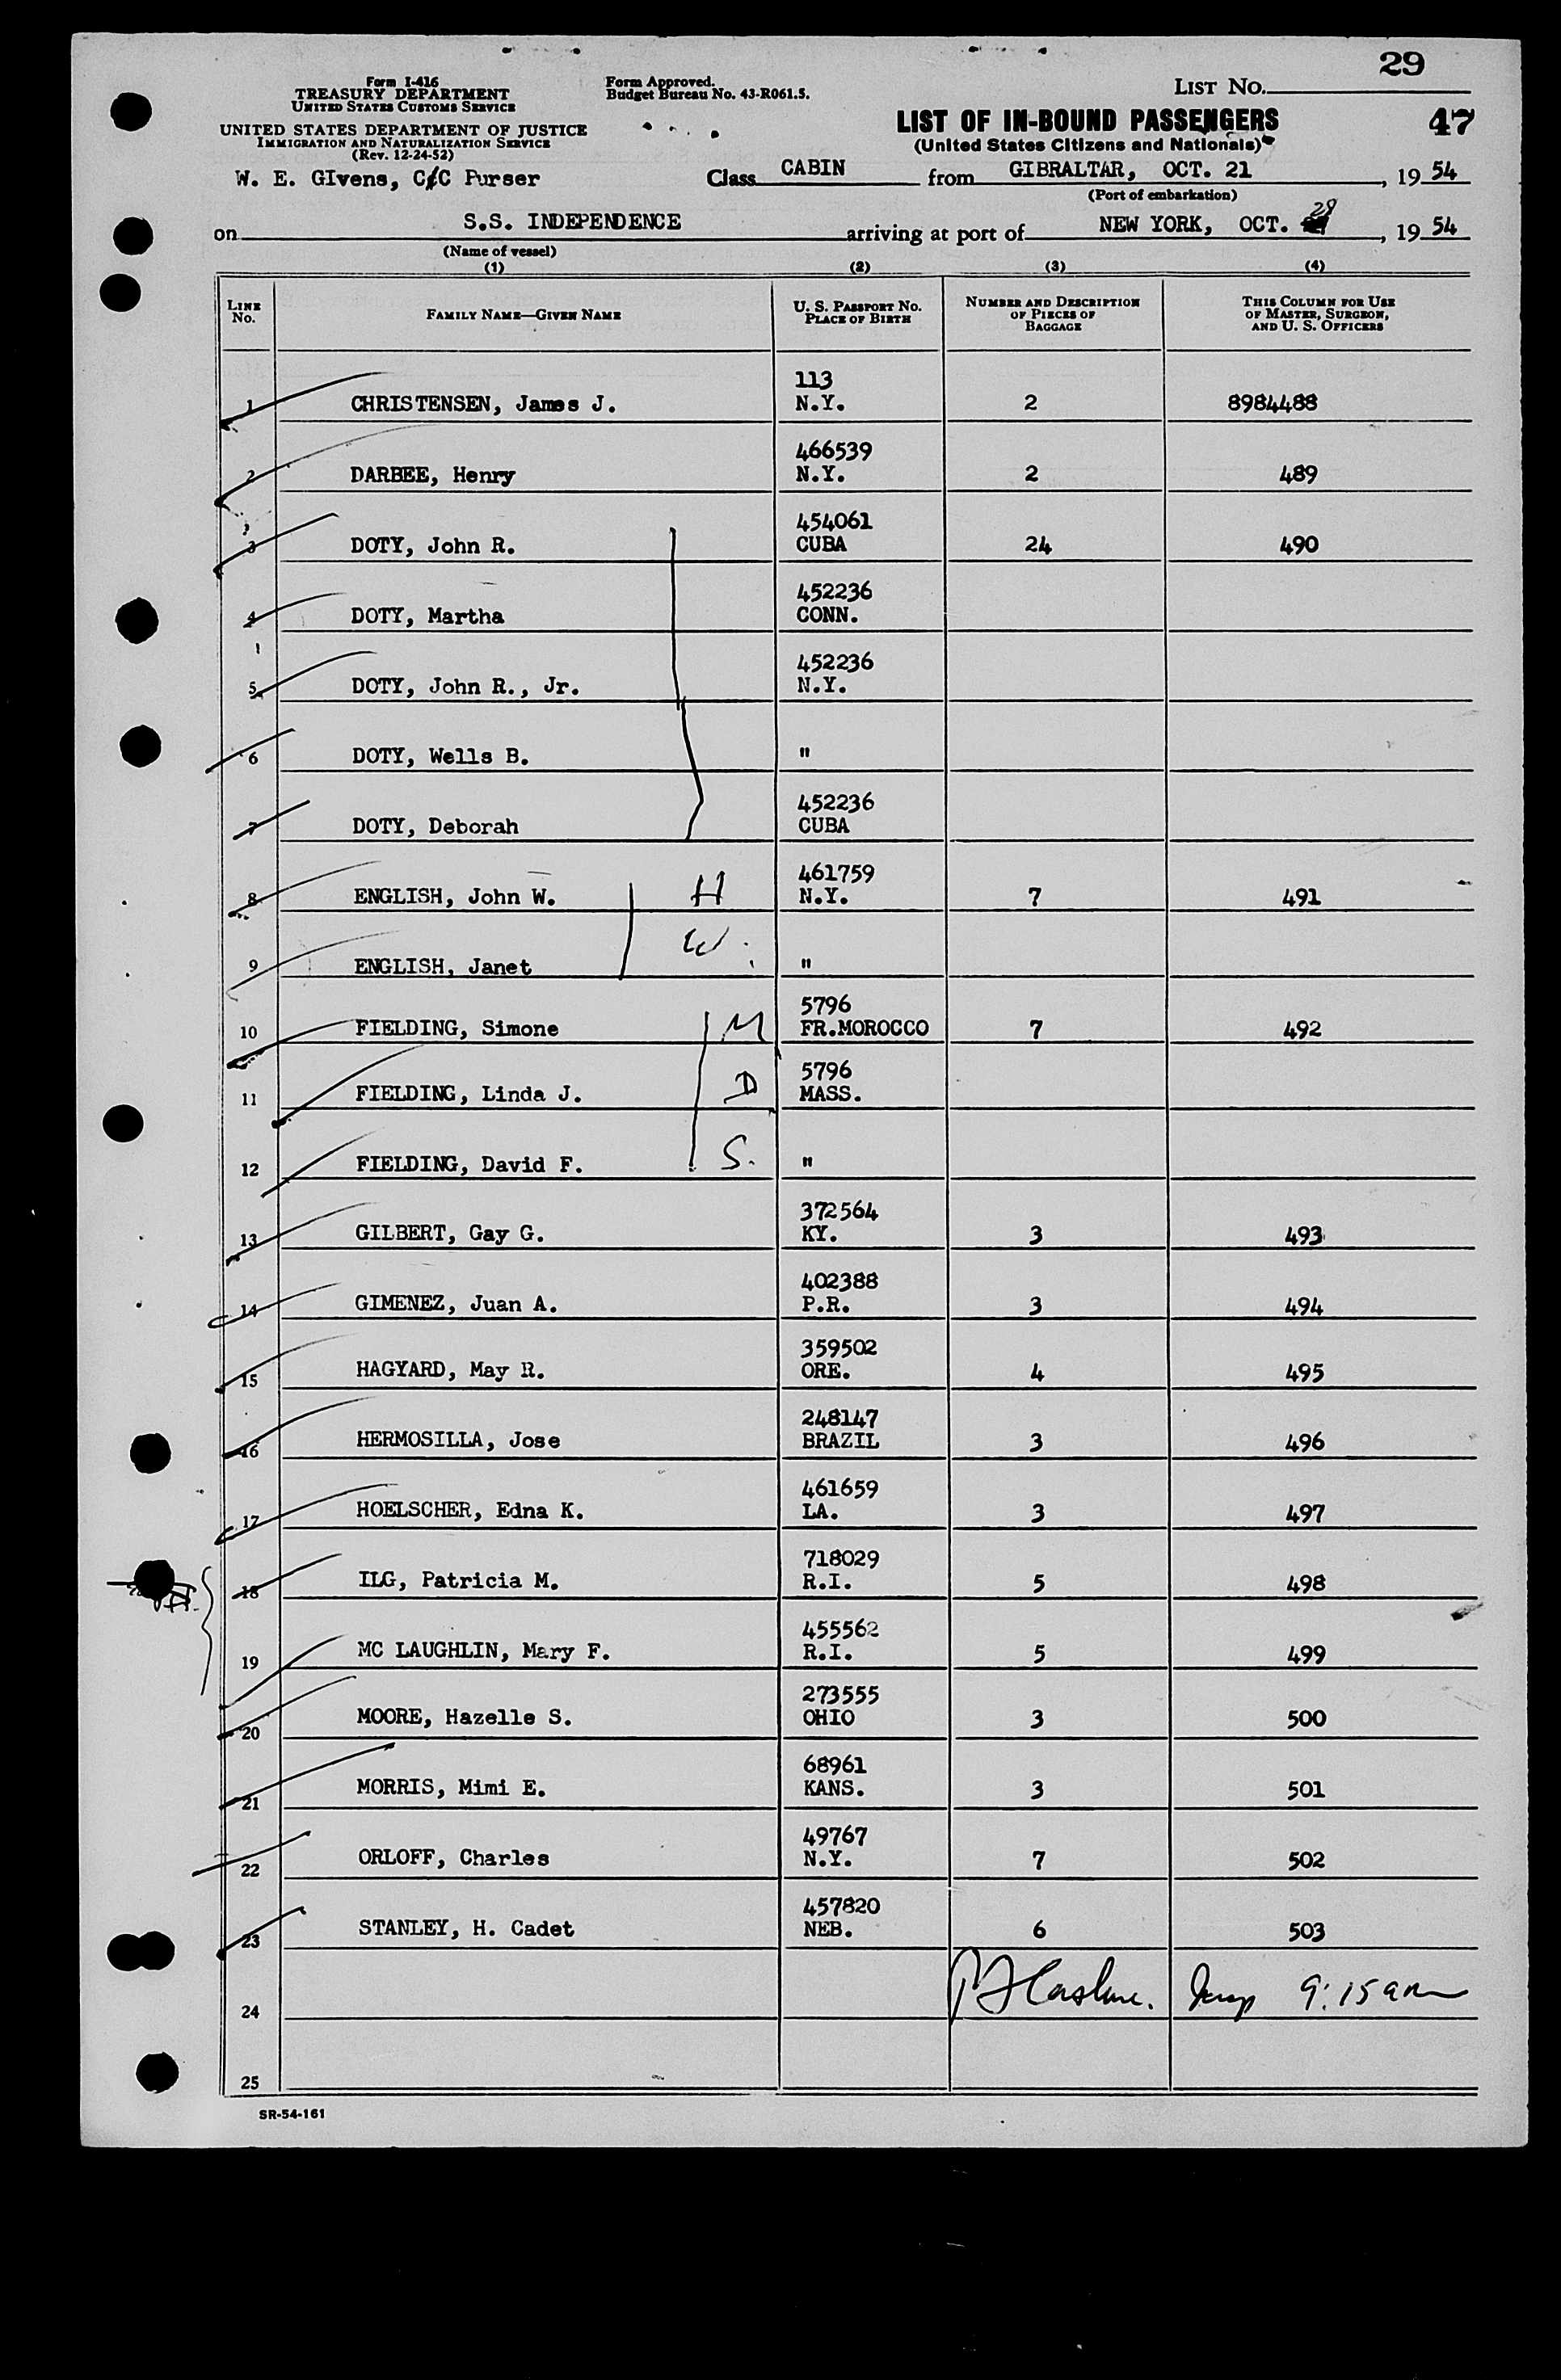 29
Form I-416
TREASURY DEPARTMENT
UNITED STATES CUSTOMS SERVICE
Form Approved.
Budget Bureau No. 43-R061.5.
LIST NO.
UNITED STATES DEPARTMENT OF JUSTICE
IMMIGRATION AND NATURALIZATION SERVICE
(Rev. 12-24-52)
LIST OF IN-BOUND PASSENGERS
47
(United States Citizens and Nationals)
W. E. GIvens, C/C Purser
Class CABIN from GIBRALTAR, OCT. 21, 19 54
(Port of embarkation)
on S.S. INDEPENDENCE arriving at port of NEW YORK, OCT. 28, 19 54
(Name of vessel)
(1) (2) (3) (4)
LINE NO. FAMILY NAME—GIVEN NAME U. S. PASSPORT NO. PLACE OF BIRTH NUMBER AND DESCRIPTION OF PIECES OF BAGGAGE THIS COLUMN FOR USE OF MASTER, SURGEON, AND U. S. OFFICERS
113
1 CHRISTENSEN, James J. N.Y. 2 8984488
466539
2 DARBEE, Henry N.Y. 2 489
454061
3 DOTY, John R. CUBA 24 490
452236
4 DOTY, Martha CONN.
452236
5 DOTY, John R., Jr. N.Y.
6 DOTY, Wells B. "
452236
7 DOTY, Deborah CUBA
461759
8 ENGLISH, John W. H N.Y. 7 491
9 ENGLISH, Janet W "
5796
10 FIELDING, Simone M FR.MOROCCO 7 492
5796
11 FIELDING, Linda J. D MASS.
12 FIELDING, David F. S. "
372564
13 GILBERT, Gay G. KY. 3 493
402388
14 GIMENEZ, Juan A. P.R. 3 494
359502
15 HAGYARD, May R. ORE. 4 495
248147
16 HERMOSILLA, Jose BRAZIL 3 496
461659
17 HOELSCHER, Edna K. LA. 3 497
718029
18 ILG, Patricia M. R.I. 5 498
455562
19 MC LAUGHLIN, Mary F. R.I. 5 499
273555
20 MOORE, Hazelle S. OHIO 3 500
68961
21 MORRIS, Mimi E. KANS. 3 501
49767
22 ORLOFF, Charles N.Y. 7 502
457820
23 STANLEY, H. Cadet NEB. 6 503
24 9:15 am
25
SR-54-161